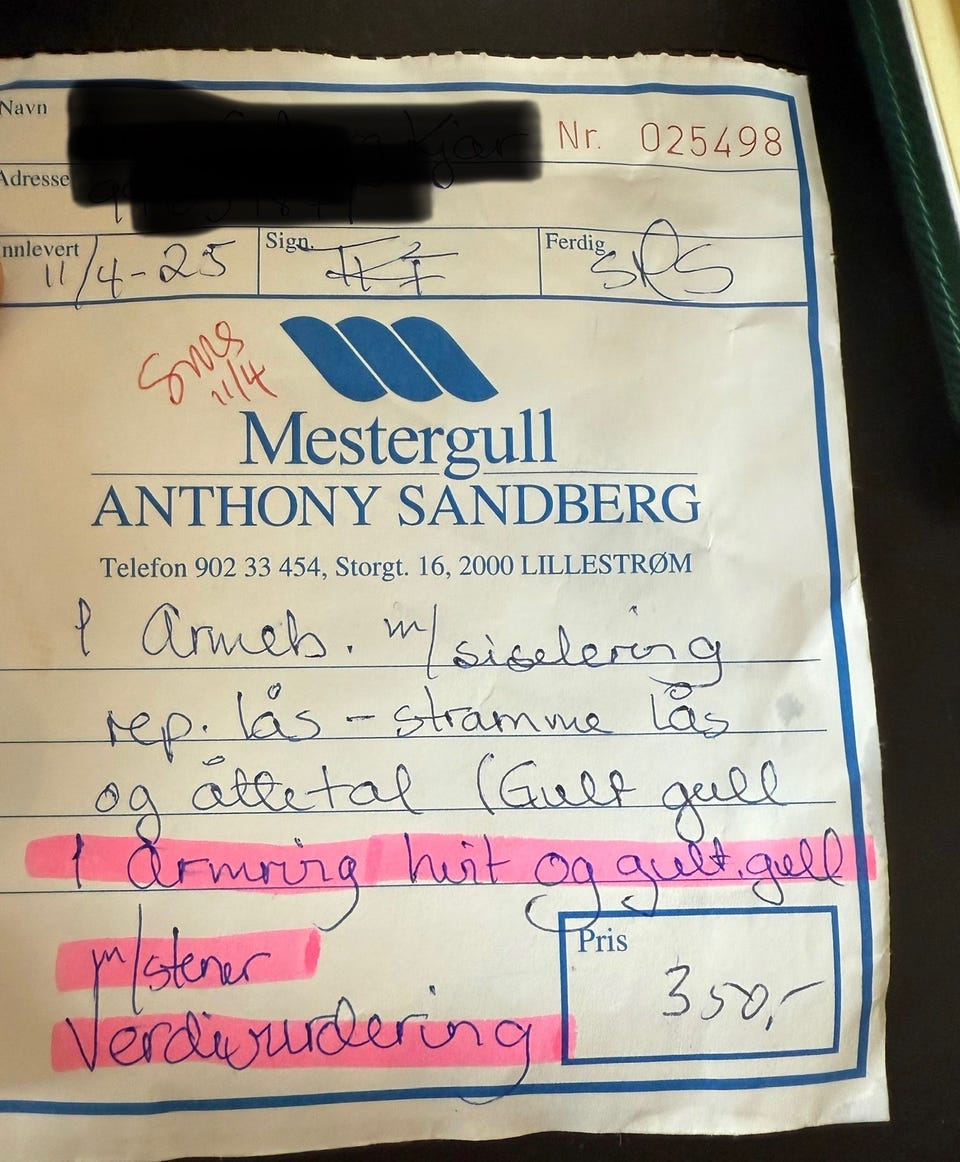 Navn
Nr. 025498
Adresse
nnlevert
11/4-25
Sign.
Ferdig
SMS
11/4
Mestergull
ANTHONY SANDBERG
Telefon 902 33 454, Storgt. 16, 2000 LILLESTRØM
1 Armeb. m/siselering
rep. lås - stramme lås
og åttetal (Gult gull
1 armring hvit og gult.gull
m/stener
Verdivurdering
Pris
350,-